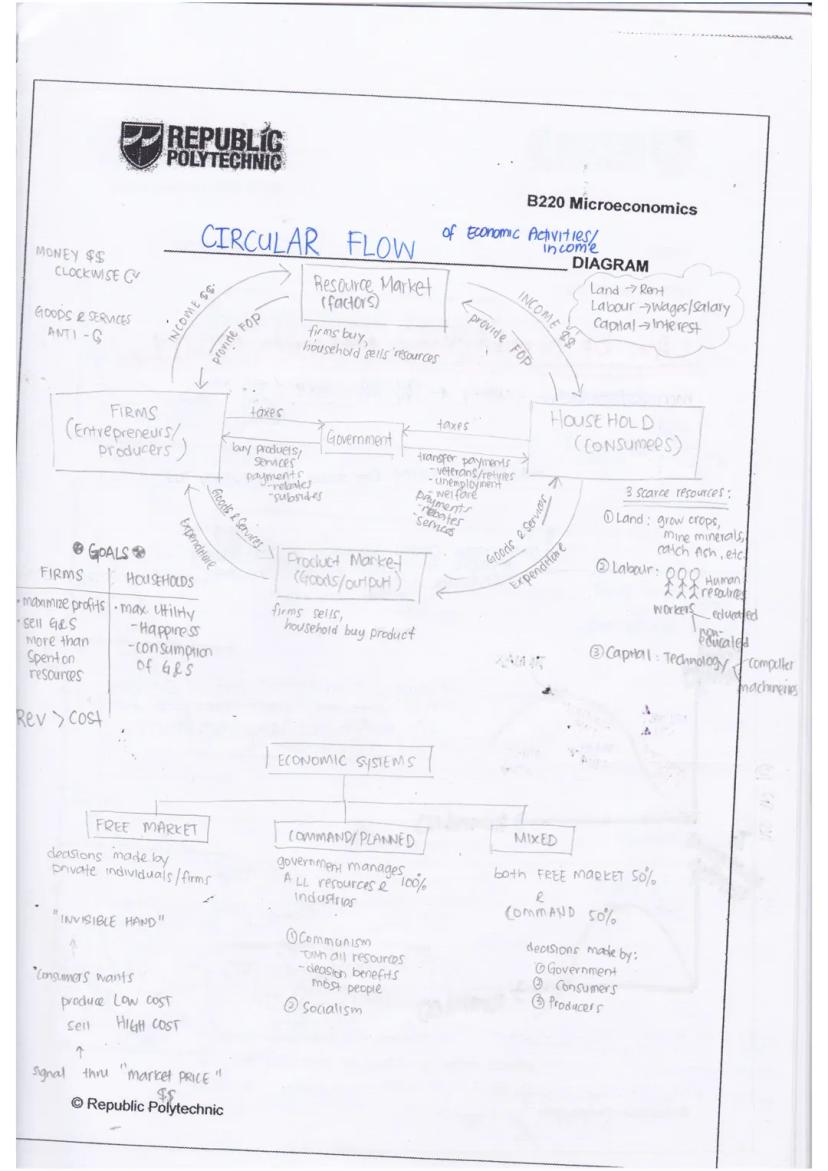 REPUBLIC
POLYTECHNIC
B220 Microeconomics
CIRCULAR FLOW of Economic Activities/
income
DIAGRAM
MONEY $$
CLOCKWISE
GOODS & SERVICES
ANTI -
INCOME $$
provide FOP
Resource Market
(factors)
firms buy,
household sells resources
INCOME $$
provide FOP
Land → Rent
Labour → Wages/Salary
Capital → Interest
FIRMS
(Entrepreneurs/
producers)
taxes
buy products,
services
payments
- rebates
- subsidies
Government
taxes
transfer payments
- veterans/retires
- unemployment
- welfare
payments
- rebates
services
HOUSEHOLD
(CONSUMERS)
Goods & Services
Expenditure
Product Market
(Goods/output)
firms sells,
household buy product
Goods & Services
Expenditure
3 scarce resources:
① Land: grow crops,
mine minerals,
catch fish, etc
② Labour: Human
resources
workers educated
non-
educated
③ Capital: Technology computer
machineries
GOALS
FIRMS
• maximize profits
• sell G&S
more than
spent on
resources
Rev > COST
HOUSEHOLDS
• max. utility
- Happiness
- consumption
of G&S
ECONOMIC SYSTEMS
FREE MARKET
decisions made by
private individuals/firms
"INVISIBLE HAND"
↑
consumers wants
produce LOW COST
sell HIGH COST
↑
signal thru "market PRICE"
$$
COMMAND/PLANNED
government manages
ALL resources & 100%
industries
① Communism
- own all resources
- decision benefits
most people
② Socialism
MIXED
both FREE MARKET 50%
&
COMMAND 50%
decisions made by:
① Government
② Consumers
③ Producers
© Republic Polytechnic